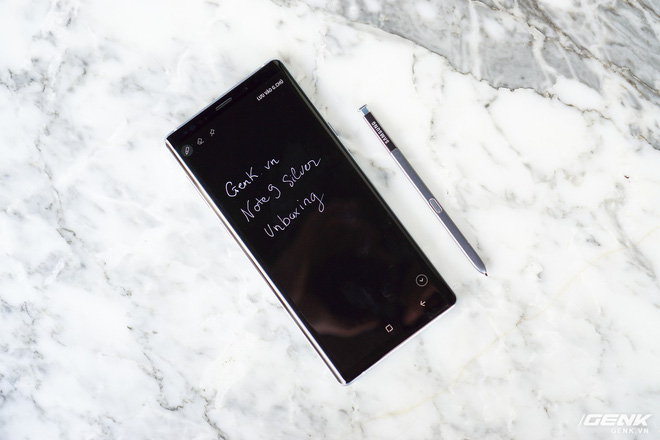 LƯU VÀO G.CHÚ
GenK.vn
Note 9 Silver
Unboxing
SAMSUNG
GENK
GENK.VN